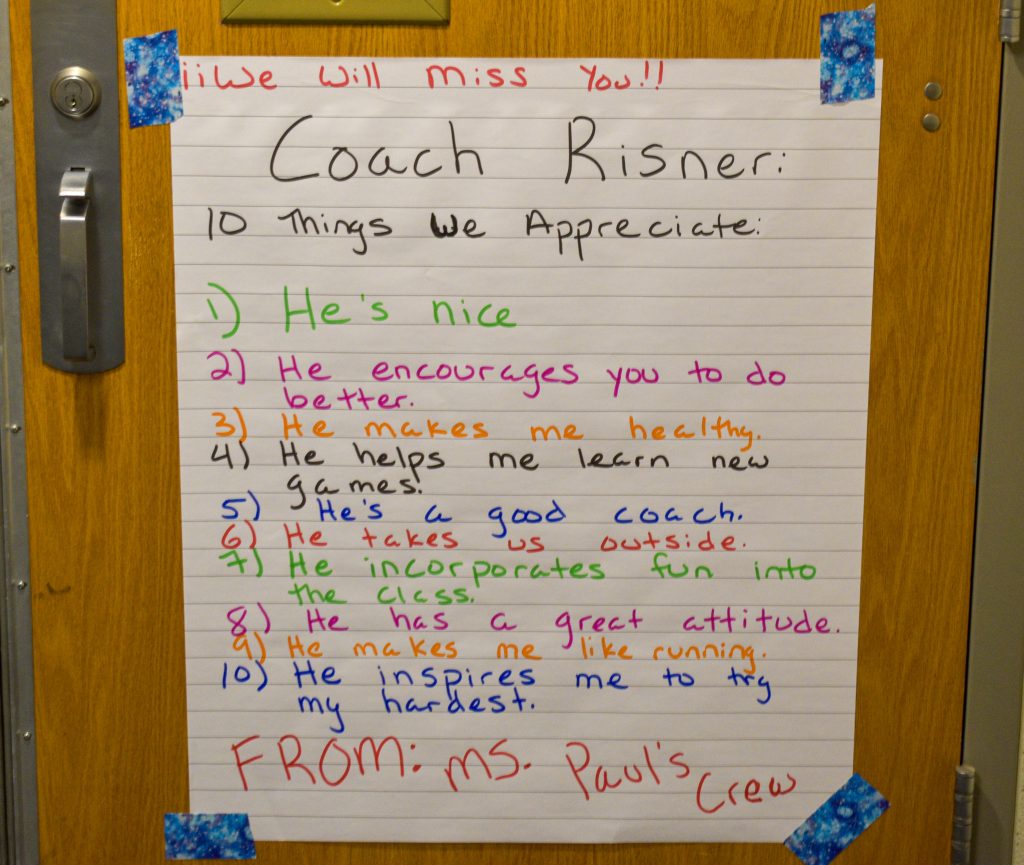 ¡¡We will miss you!!
Coach Risner:
10 Things We Appreciate:
1) He's nice
2) He encourages you to do
better.
3) He makes me healthy.
4) He helps me learn new
games.
5) He's a good coach.
6) He takes us outside.
7) He incorporates fun into
the class.
8) He has a great attitude.
9) He makes me like running.
10) He inspires me to try
my hardest.
FROM: Ms. Paul's
Crew